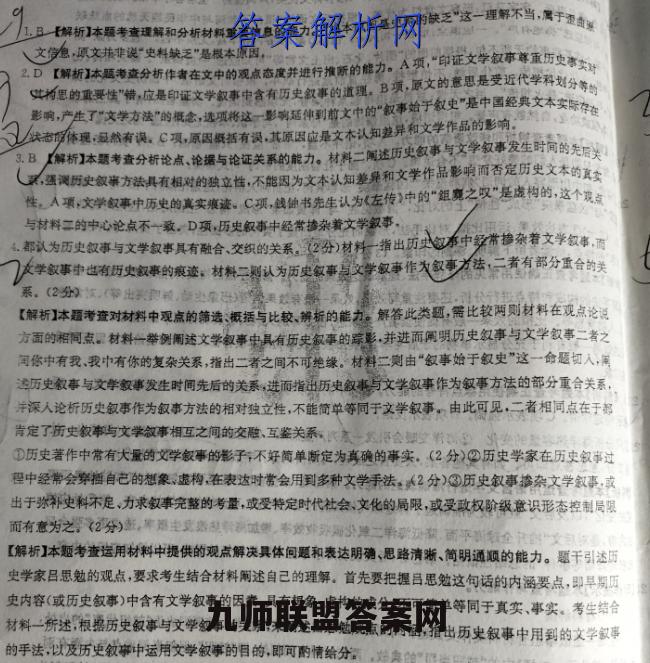 答案解析网
1. B 【解析】本题考查理解和分析材料重要信息的能力。 缺乏”这一理解不当,属于歪曲原
文信息,原文并非说“史料缺乏”是根本原因。
2. D 【解析】本题考查分析作者在文中的观点态度并进行推断的能力。A项,“印证文学叙事尊重历史事实对
其构思的重要性”错,应是印证文学叙事中含有历史叙事的道理。B项,原文的意思是受近代学科划分等的
影响,产生了“文学方法”的概念,选项将这一影响延伸到前文中的“叙事始于叙史”是中国经典文本实际存在
状态的体现,显然有误。C项,原因概括有误,其原因应是文本认知差异和文学作品的影响。
3. B 【解析】本题考查分析论点、论据与论证关系的能力。材料二阐述历史叙事与文学叙事发生时间的先后关
系,强调历史叙事方法具有相对的独立性,不能因为文本认知差异和文学作品影响而否定历史文本的真实
性。A项,文学叙事中历史的真实痕迹。C项,钱钟书先生认为《左传》中的“鉏麑之叹”是虚构的,这个观点
与材料二的中心论点不一致。D项,历史叙事中经常掺杂着文学叙事。
4. 都认为历史叙事与文学叙事具有融合、交织的关系。(2分)材料一指出历史叙事中经常掺杂着文学叙事,而
文学叙事中也有历史叙事的痕迹。材料二则认为历史叙事与文学叙事作为叙事方法,二者有部分重合的关
系。(2分)
【解析】本题考查对材料中观点的筛选、概括与比较、辨析的能力。解答此类题,需比较两则材料在观点论说
方面的相同点。材料一举例阐述文学叙事中具有历史叙事的踪影,并进而阐明历史叙事与文学叙事二者之
间你中有我、我中有你的复杂关系,指出二者之间不可绝缘。材料二则由“叙事始于叙史”这一命题切入,阐
述历史叙事与文学叙事发生时间先后的关系,进而指出历史叙事与文学叙事作为叙事方法的部分重合关系,
并深入论析历史叙事作为叙事方法的相对独立性,不能简单等同于文学叙事。由此可见,二者相同点在于都
肯定了历史叙事与文学叙事相互之间的交融、互鉴关系。
①历史著作中常有大量的文学叙事的影子,不好简单断定为真确的事实。(2分)②历史学家在历史叙事过
程中经常会穿插自己的想象、虚构,在表达时常会用到多种文学手法。(2分)③历史叙事掺杂文学叙事,或
出于弥补史料不足、力求叙事完整的考量,或受特定时代社会、文化的局限,或受政权阶级意识形态控制局限
而有意为之。(2分)
【解析】本题考查运用材料中提供的观点解决具体问题和表达明确、思路清晰、简明通顺的能力。题干引述历
史学家吕思勉的观点,要求考生结合材料阐述自己的理解。首先要把握吕思勉这句话的内涵要点,即早期历
史内容(或历史叙事)中含有文学叙事的因素 等同于真实、事实。考生结合
材料一所述,根据历史叙事与文学叙事 指出历史叙事中用到的文学叙事
的手法,以及历史叙事中运用文学叙事的目的,即可酌情给分。
九师联盟答案网